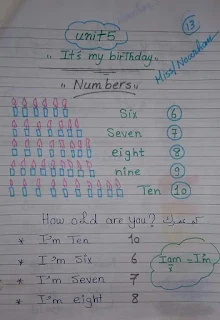 13
unit 5
Miss/Nawal
" It's my birthday "
" Numbers "
Six 6
Seven 7
eight 8
nine 9
Ten 10
How old are you? كم عمرك
* I'm Ten 10
* I'm Six 6
* I'm Seven 7
* I'm eight 8
I am = I'm